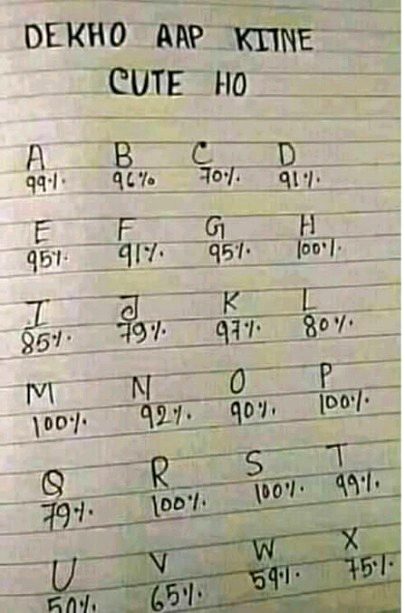 DEKHO AAP KITNE
CUTE HO
A B C D
99% 96% 70% 91%
E F G H
95% 91% 95% 100%
I J K L
85% 79% 97% 80%
M N O P
100% 92% 90% 100%
Q R S T
79% 100% 100% 99%
U V W X
50% 65% 59% 75%